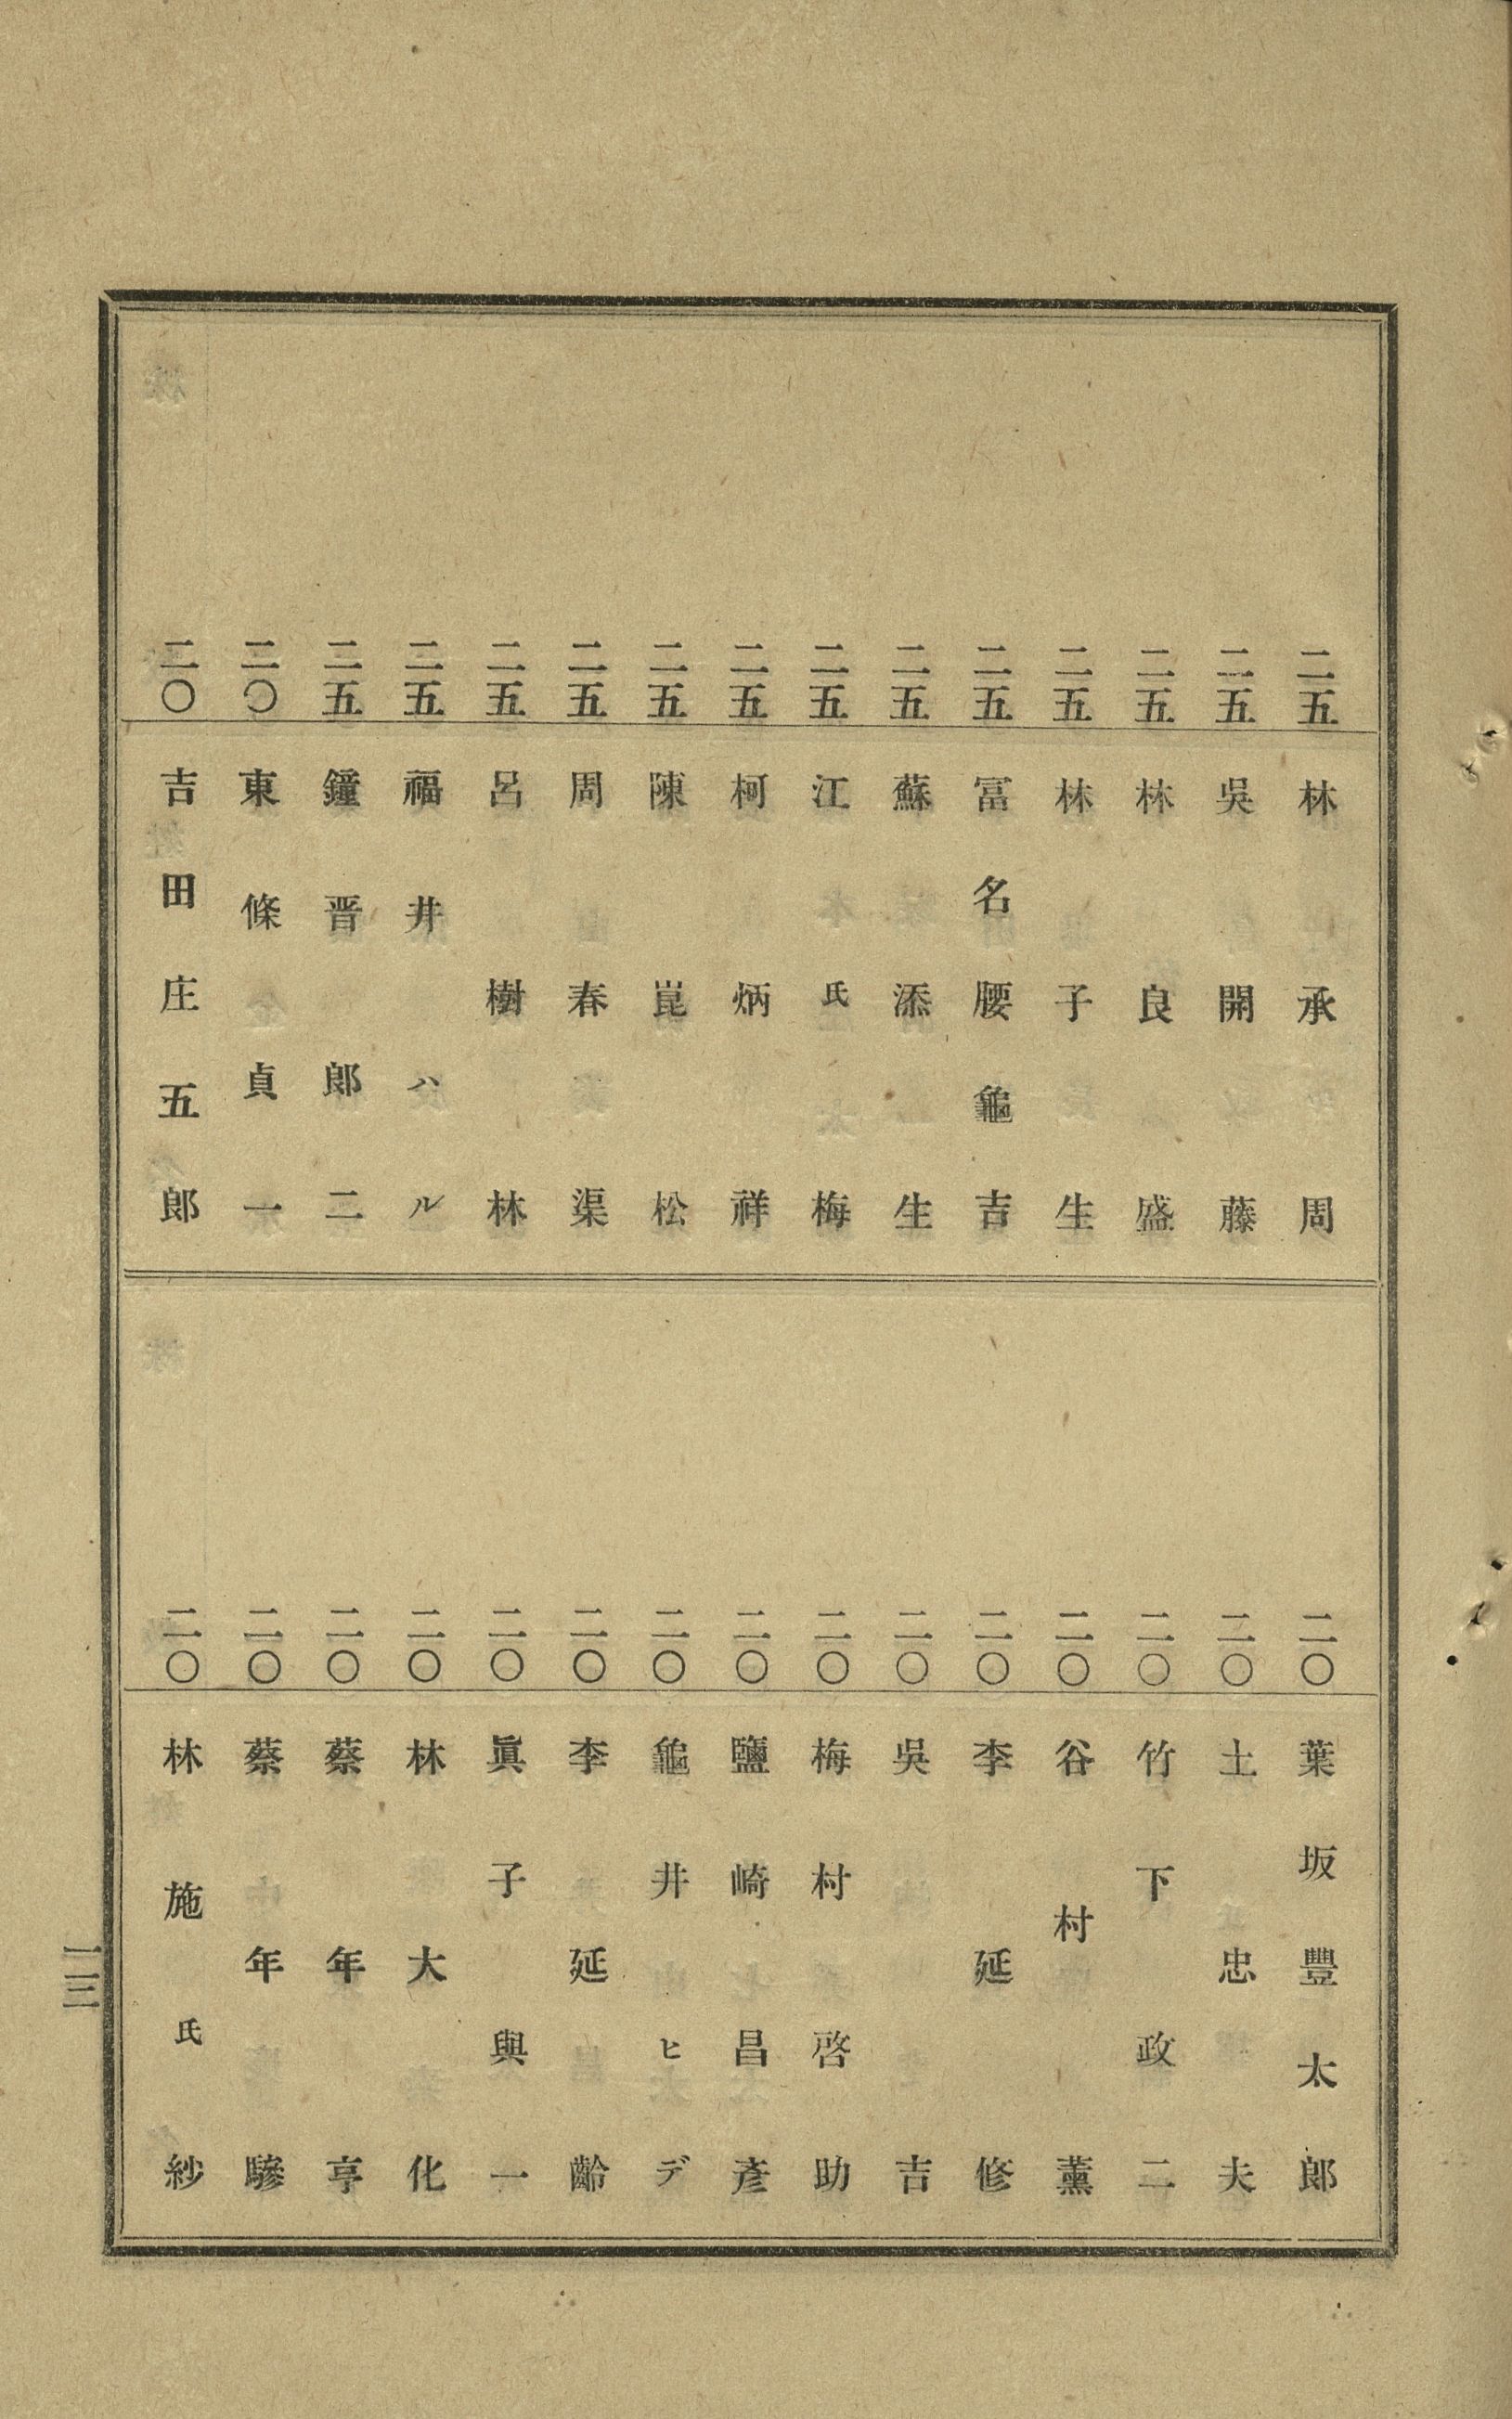 二五 林承周
二五 吳開藤
二五 林良盛
二五 林子生
二五 冨名腰龜吉
二五 蘇添生
二五 江氏梅
二五 柯炳祥
二五 陳崑松
二五 周春渠
二五 呂樹林
二五 福井ハル
二五 鐘晋郎二
二〇 東條貞一
二〇 吉田庄五郎
二〇 葉坂豐太郎
二〇 土忠夫
二〇 竹下政二
二〇 谷村薰
二〇 李延修
二〇 吳吉
二〇 梅村啓助
二〇 鹽崎昌彥
二〇 龜井ヒデ
二〇 李延齡
二〇 眞子與一
二〇 林大化
二〇 蔡年亨
二〇 蔡年驂
二〇 林施氏紗
一三